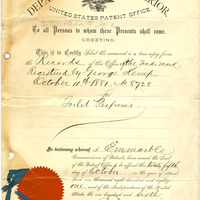 DEPARTMENT OF THE INTERIOR.
UNITED STATES PATENT OFFICE.
To all Persons to whom these Presents shall come,
GREETING:
This is to Certify That the annexed is a true copy from
the Records of this Office of the Trade-mark
Registered by George Kemp
October 11th 1881. No 8728
for
Toilet Perfume
In testimony whereof I,
Commissioner of Patents, have caused the Seal
of the Patent Office to be affixed this
October in the year
of our Lord one thousand eight hundred and eighty
one, and of the Independence of the United
States the one hundred and sixth